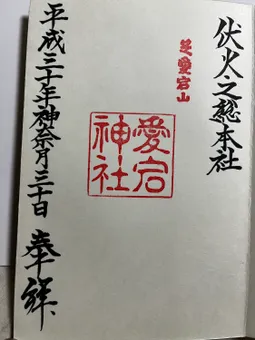 伏火之総本社
芝愛宕山
愛宕
神社
奉拝
平成三十年神奈月三十日